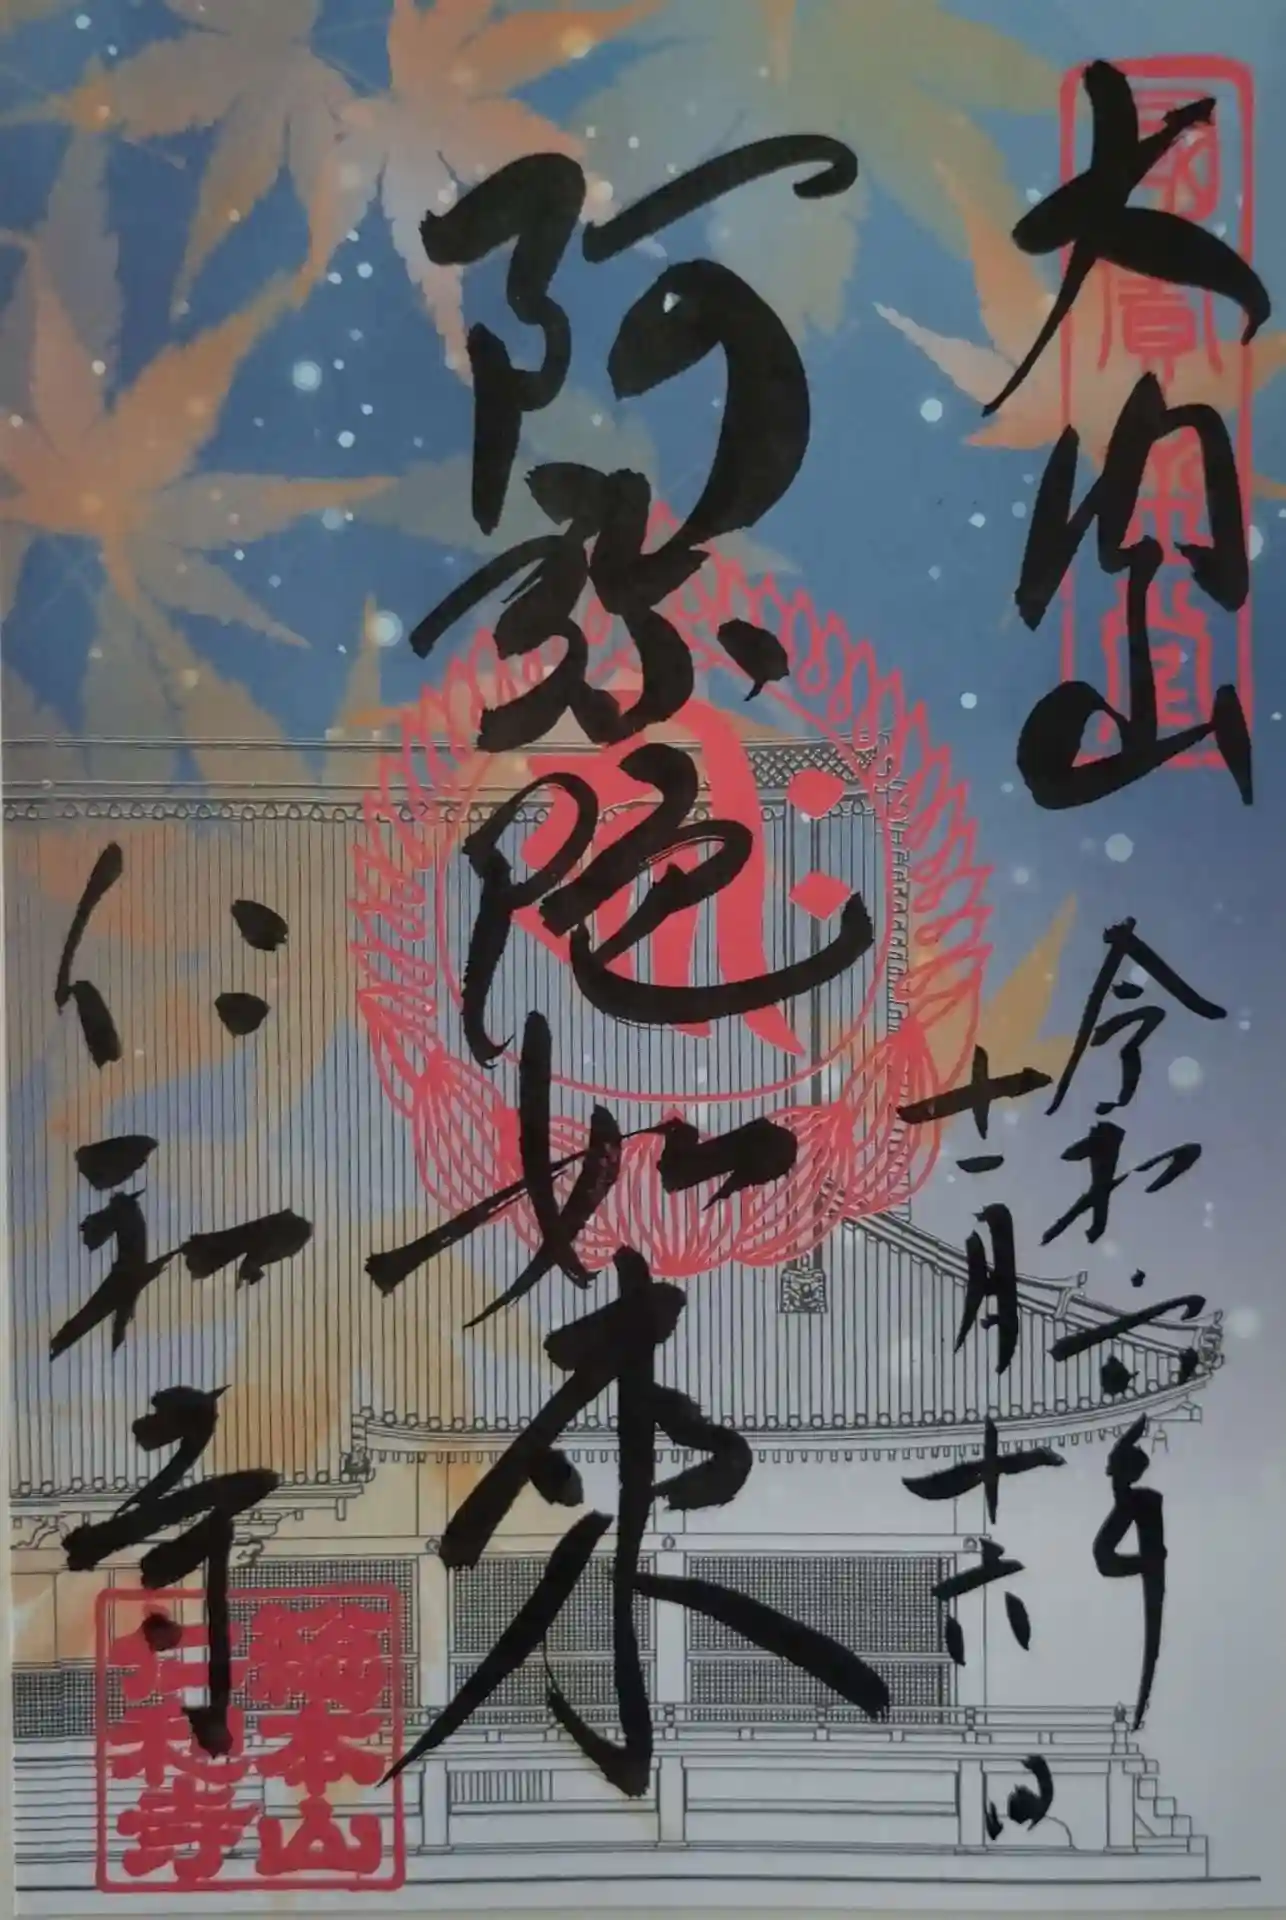 大内山
令和六年
十一月十六日
阿弥陀如来
仁和寺
國寳金堂
総本山
仁和寺